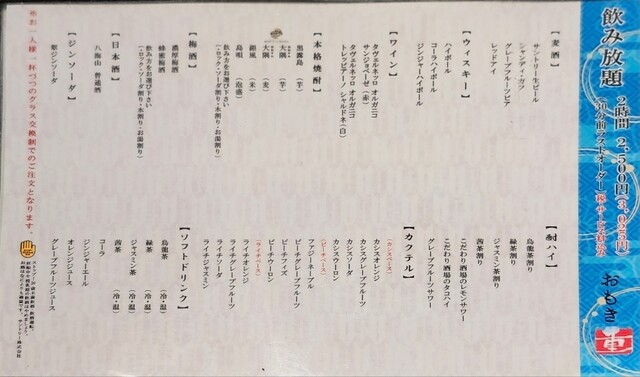 飲み放題
2時間 2,500円(3,025円)
おもき
重
【麦酒】
サントリー生ビール
シャンディガフ
グレープフルーツビア
レッドアイ
【ウィスキー】
ハイボール
コーラハイボール
ジンジャーハイボール
【ワイン】
タヴェルネッロ オルガニコ
サンジョベーゼ(赤)
タヴェルネッロ オルガニコ
トレッビアーノ シャルドネ(白)
【本格焼酎】
黒霧島 (芋)
大隅 (芋)
大隅 (麦)
(米)
島唄 (泡盛)
飲み方をお選び下さい
・ロック・ソーダ割り・水割り・お湯割り)
【梅酒】
濃厚梅酒
蜂蜜梅酒
飲み方をお選び下さい
・ロック・ソーダ割り・水割り・お湯割り)
【日本酒】
八海山 普通酒
【ジンソーダ】
翠ジンソーダ
※お一人様一杯づつのグラス交換制でのご注文となります。
【酎ハイ】
烏龍茶割り
緑茶割り
ジャスミン茶割り
茜茶割り
こだわり酒場のレモンサワー
こだわり酒場のタコハイ
グレープフルーツサワー
【カクテル】
(カシスベース)
カシスオレンジ
カシスグレープフルーツ
カシスソーダ
カシスウーロン
(ピーチベース)
ファジーネーブル
ピーチグレープフルーツ
ピーチフィズ
ピーチウーロン
(ライチベース)
ライチオレンジ
ライチグレープフルーツ
ライチソーダ
ライチジャスミン
【ソフトドリンク】
烏龍茶 (冷・温)
緑茶 (冷・温)
ジャスミン茶 (冷・温)
茜茶 (冷・温)
コーラ
ジンジャーエール
オレンジジュース
グレープフルーツジュース